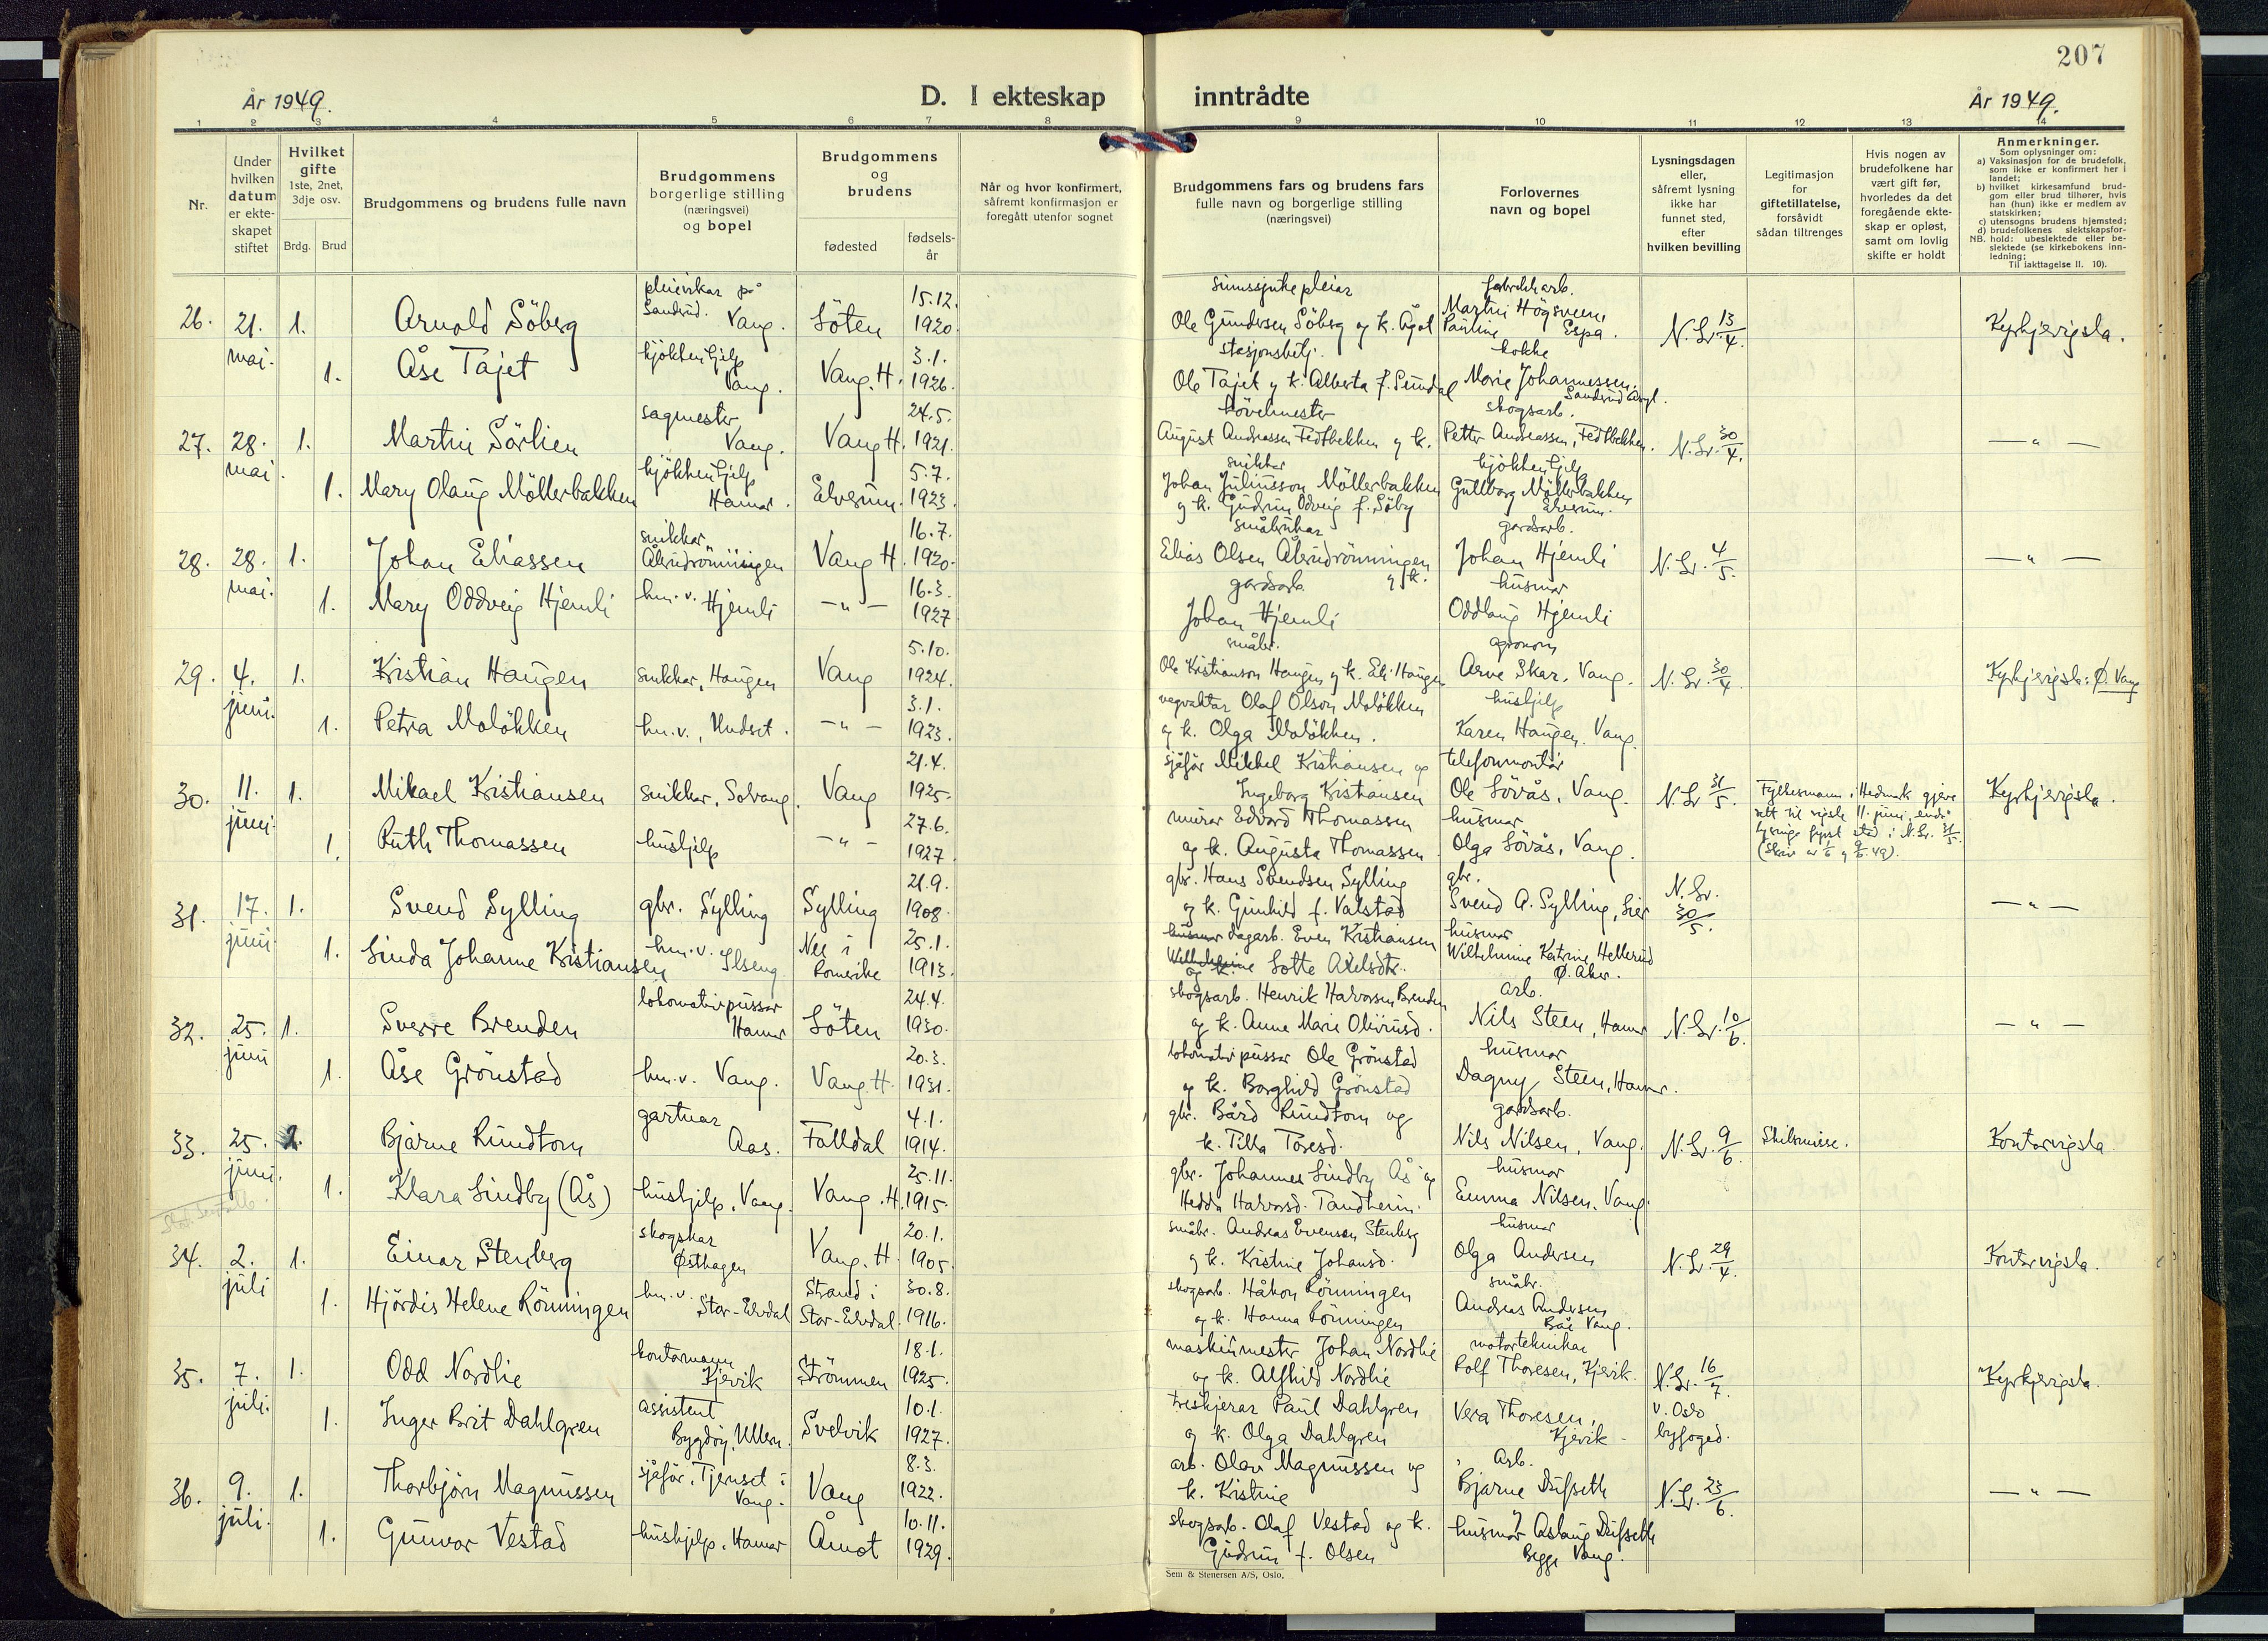 207
År 1949.
D. I ekteskap inntrådte
År 1949.
1 2 3 4 5 6 7 8 9 10 11 12 13 14
Nr.
Under hvilken datum er ekte-skapet stiftet
Hvilket gifte 1ste, 2net, 3dje osv.
Brdg. Brud
Brudgommens og brudens fulle navn
Brudgommens borgerlige stilling (næringsvei) og bopel
Brudgommens og brudens
fødested fødsels-år
Når og hvor konfirmert, såfremt konfirmasjon er foregått utenfor sognet
Brudgommens fars og brudens fars fulle navn og borgerlige stilling (næringsvei)
Forlovernes navn og bopel
Lysningsdagen eller, såfremt lysning ikke har funnet sted, efter hvilken bevilling
Legitimasjon for giftetillatelse, forsåvidt sådan tiltrenges
Hvis nogen av brudefolkene har vært gift før, hvorledes da det foregående ekte-skap er opløst, samt om lovlig skifte er holdt
Anmerkninger.
Som oplysninger om:
a) Vaksinasjon for de brudefolk, som ikke er konfirmert her i landet;
b) hvilket kirkesamfund brud-gom eller brud tilhører, hvis han (hun) ikke er medlem av statskirken;
c) utensogns brudens hjemsted;
d) brudefolkenes slektskapsfor-hold: ubeslektede eller be-slektede (se kirkebokens inn-ledning;
NB. Til iakttagelse II. 10).
26. 21. mai. 1. Arnold Söberg pleievikar på Sandrud. Vang. Löten 15.12. 1920. sinnssjukepleiar Ole Gundersen Söberg og k. Ågot fabrikkarb. Martin Högsveen, Espa. N. Lr. 13/4. Kyrkjevigsla.
1. Åse Tajet kjökkenhjelp Vang. Vang. H. 3.1. 1926. stasjonsbetj. Ole Tajet og k. Alberta f. Sundal kokke Marie Johannessen, Sandrud
27. 28. mai. 1. Martin Sörlien sagmester Vang. Vang H. 24.5. 1921. hövelmester August Andreassen Fedtbekken og k. Pauline skogsarb. Petter Andreassen, Fedtbekken. N. Lr. 30/4. — " —
1. Mary Olaug Möllerbakken kjökkenhjelp Hamar. Elverum. 5.7. 1923. snikkar Johan Juliusson Möllerbakken og k. Gudrun Oddveig f. Söby kjökkenhjelp Gullborg Möllerbakken Elverum.
28. 28. mai. 1. Johan Eliassen snikkar Ålsrudrönningen Vang H. 16.7. 1920. småbrukar Elias Olsen Ålsrudrönningen og k. gardsarb. Johan Hjemli N. Lr. 4/5. — " —
1. Mary Oddveig Hjemli hm.v. Hjemli — " — 16.3. 1927 gardsarb. Johan Hjemli husmor Oddlaug Hjemli
29. 4. juni. 1. Kristian Haugen snikkar, Haugen Vang 5.10. 1924. småbr. Ole Kristianson Haugen og k. Eli Haugen agronom Arve Skar, Vang. N. Lr. 30/4. Kyrkjevigsla: Ø. Vang
1. Petra Molökken hm.v., Hudset. — " — 3.1. 1923. vegvaktar Olaf Olson Molökken og k. Olga Molökken. hushjelp Karen Haugen, Vang.
30. 11. juni. 1. Mikael Kristiansen snikkar, Solvang. Vang 21.4. 1925. sjåfør Mikkel Kristiansen og Ingeborg Kristiansen telefonmontör Ole Lövås, Vang. N. Lr 31/5. Fylkesmann i Hedmark gjeve rett til vigsle 11. juni, endå lysinga fyrst sted i N. Lr. 31/5. (Skriv av 1/6 og 9/6.49). Kyrkjevigsla.
1. Ruth Thomassen hushjelp — " — 27.6. 1927. murar Edvard Thomassen og k. Augusta Thomassen husmor Olga Lövås, Vang.
31. 17. juni 1. Svend Sylling gbr. Sylling Sylling 21.9. 1908. gbr. Hans Svendsen Sylling og k. Gunhild f. Valstad gbr. Svend A. Sylling, Lier N. Lr. 30/5. — " —
1. Linda Johanne Kristiansen hm.v. Ilseng Nes i Romerike 25.1. 1913. husmor dagarb. Even Kristiansen Wilhelmine og k. Lotte Axelsdtr. husmor Wilhelmine Katrine Hellerud Ø. Aker.
32. 25. juni 1. Sverre Brenden lokomotivpussar Hamar Löten 24.4. 1930. skogsarb. Henrik Halvorsen Brenden og k. Anne Marie Oliviusd. arb. Nils Steen, Hamar N. Lr. 10/6. — " —
1. Åse Grönstad hm.v. Vang. Vang. H. 20.3. 1931. lokomotivpussar Ole Grönstad og k. Borghild Grönstad husmor Dagny Steen, Hamar.
33. 25. juni. 2. Bjarne Rundtom gartnar Aas. Folldal 4.1. 1914. gbr. Bård Rundtom og k. Tilla Toresd. gardsarb. Nils Nilsen, Vang. N. Lr. 9/6 Skilsmisse. Kontorvigsla.
1. Klara Lindby (Ås) hushjelp, Vang. Vang. H. 25.11. 1915. gbr. Johannes Lindby Ås og Hedda Halvorsd. Tandheim. husmor Emma Nilsen, Vang.
34. 2. juli 1. Einar Stenberg skogskar Østhagen Vang. H. 20.1. 1905. småbr. Andreas Evensen Stenberg og k. Kristine Johansd. husmor Olga Andersen N. Lr. 29/4. Kontorvigsla.
1. Hjördis Helene Rönningen hm.v. Stor-Elvdal Strand i Stor-Elvdal. 30.8. 1916. skogsarb. Håkon Rönningen og k. Hanna Rönningen småbr. Andreas Andersen Vang.
35. 7. juli. 1. Odd Nordlie kontormann Kjevik Strömmen 18.1. 1925. maskinmester Johan Nordlie og k. Alfhild Nordlie motorteknikar Rolf Thoresen, Kjevik. N. Lr. 16/7. v. Oslo byfoged. Kyrkjevigsla.
1. Inger Brit Dahlgren assistent Bygdöy, Ullern. Svelvik 10.1. 1927. treskjerar Paul Dahlgren og k. Olga Dahlgren Vera Thoresen, Kjevik
36. 9. juli. 1. Thorbjörn Magnussen sjåför, Tjenset i Vang. Vang 8.3. 1922. arb. Olav Magnussen og k. Kristine Arb. Bjarne Dufseth N. Lr. 23/6. — " —
1. Gunvor Vestad hushjelp, Hamar Åmot 10.11. 1929. skogsarb. Olaf Vestad og k. Gudrun f. Olsen husmor Aslaug Dufseth Begge Vang.
Sem & Stenersen A/S, Oslo.